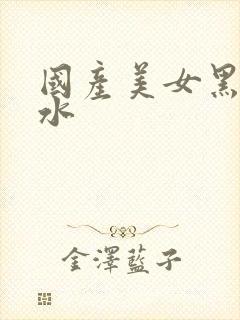 國產美女黑
水
金澤藍子